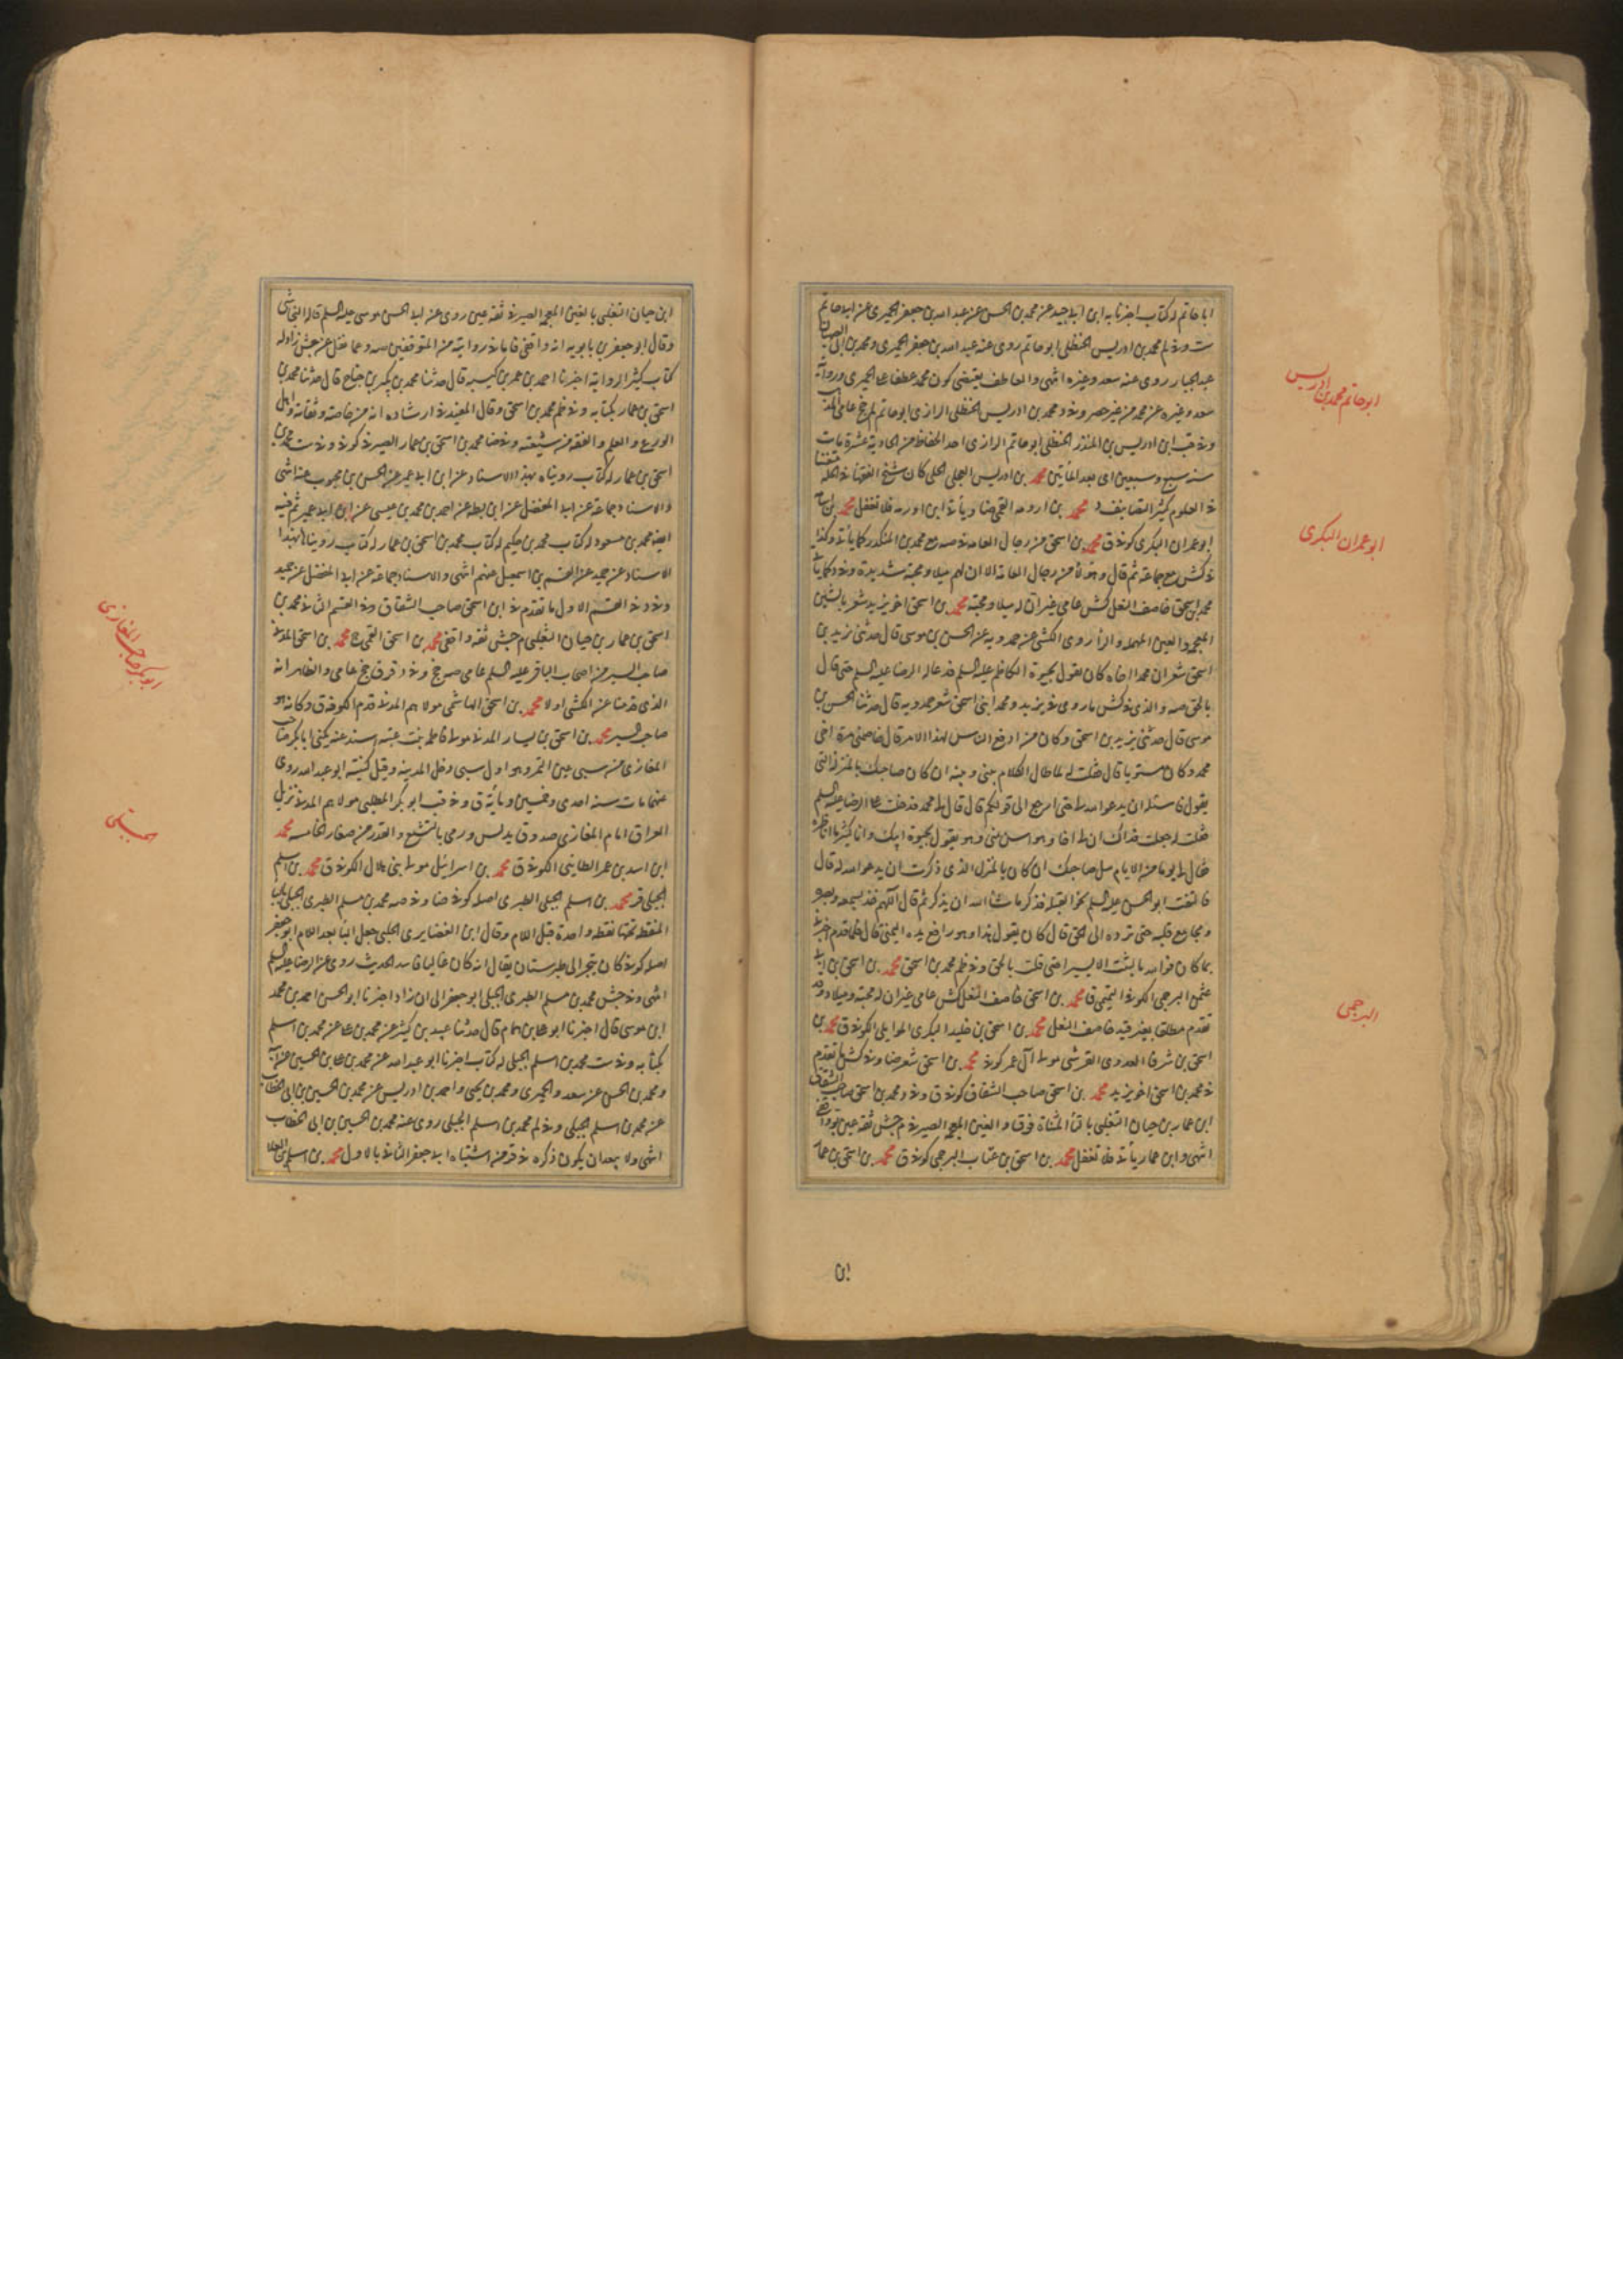 ابا حاتم له كتاب اخبرنا به ابن ابى جيد عن محمد بن الحسن عن عبد الله بن جعفر الحميرى عن ابى حاتم
ست وفى لم محمد بن ادريس الحنظلى ابو حاتم روى عنه عبد الله بن جعفر الحميرى ومحمد بن ابى الصهبان
عبد الجبار روى عنه سعد وغيره انتهى والعاطف يقتضى كون محمد عطفا على الحميرى
سعد وغيره عن محمد من غير حصر وفى د محمد بن ادريس الحنظلى الرازى ابو حاتم لم جخ عامى المذ
وفى قب ابن ادريس بن المنذر الحنظلى ابو حاتم الرازى احد الحفاظ من الحادية عشرة مات
سنه سبع وسبعين اى بعد المأتين محمد بن ادريس العجلى الحلى كان شيخ الفقهاء بالحله متقنا
فى العلوم كثير التصانيف د محمد بن ارومه القمى ضا ويأتى ابن اورمه فلا تغفل محمد بن
ابو عمران البكرى كوفى ق محمد بن اسحق من رجال العامه فى صه مع محمد بن المنكدر كما يأتى وكذا
فى كش مع جماعة ثم قال وهؤلاء من رجال العامة الا ان لهم ميلا ومحبة شديدة وفى د كما يأتى
محمد بن اسحق خاصف النعل كش عامى غير ان له ميلا ومحبة محمد بن اسحق اخو يزيد شعر بالشين
المعجمه والعين المهمله والراء روى الكشى عن حمدويه عن الحسن بن موسى قال حدثنى يزيد بن
اسحق شعر ان محمدا اخاه كان يقول بحيوة الكاظم عليه السلم فدعا له الرضا عليه السلم حتى قال
بالحق صه والذى فى كش ما روى فى يزيد ومحمد ابنى اسحق شعر حمدويه قال حدثنا الحسن بن
موسى قال حدثنى يزيد بن اسحق وكان من ادفع الناس لهذا الامر قال خاصمنى مرة اخى
محمد وكان مستويا قال فقلت له لما طال الكلام بينى وبينه ان كان صاحبك بالمنزلة التى
يقول فاسئله ان يدعو الله لى حتى ارجع الى قولكم قال قال لى محمد فدخلت على الرضا عليه السلم
فقلت له جعلت فداك ان لى اخا وهو اسن منى وهو يقول بحيوة ابيك وانا كثيرا ما اناظره
فقال لى يوما من الايام سل صاحبك ان كان بالمنزل الذى ذكرت ان يدعو الله له قال
فالتفت ابو الحسن عليه السلم نحو القبلة فذكر ما شاء الله ان يذكر ثم قال اللهم خذ بسمعه وبصره
ومجامع قلبه حتى ترده الى الحق قال كان يقول هذا وهو رافع يده اليمنى قال فلما قدم اخبرنى
بما كان فوالله ما لبثت الا يسيرا حتى قلت بالحق وفى ظم محمد بن اسحق محمد بن اسحق بن ابى
عثمن البرجمى الكوفى التيمى ق محمد بن اسحق خاصف النعل كش عامى غير ان له محبة وميلا د وقد
تقدم مطلقا بغير قيد خاصف النعل محمد بن اسحق بن خليد البكرى الكوفى ق محمد بن
اسحق بن شرفا العدوى القرشى مولى آل عمر كوفى محمد بن اسحق شعر ضا وفى كش ما تقدم
فى محمد بن اسحق اخو يزيد محمد بن اسحق صاحب الشقاق كوفى ق وفى د محمد بن اسحق صاحب الشقاق
ابن عمار بن حيان التغلبى بالتاء المثناة فوق والغين المعجمه الصيرفى م جش ثقه عين
انتهى وابن عمار يأتى فلا تغفل محمد بن اسحق بن عتاب البرجمى كوفى ق محمد بن اسحق بن عمار
ابن
ابو حاتم محمد بن ادريس
ابو عمران البكرى
البرجمى
ابن حيان التغلبى بالغين المعجمه الصيرفى ثقه عين روى عن ابى الحسن موسى عليه السلم قاله النجاشى
وقال ابو جعفر بن بابويه انه واقفى فانا فى روايته من المتوقفين صه وعما نقل عن جش زاد له
كتاب كثير الرواية اخبرنا احمد بن عمر بن كيسبه قال حدثنا محمد بن بكر بن جناح قال حدثنا محمد بن
اسحق بن عمار بكتابه وفى ظم محمد بن اسحق وقال المفيد فى ارشاده انه من خاصته وثقاته واهل
الورع والعلم والفقه من شيعته وفى ضا محمد بن اسحق بن عمار الصيرفى كوفى وفى ست محمد بن
اسحق بن عمار له كتاب رويناه بهذا الاسناد عن ابن ابى عمير عن الحسن بن محبوب عنه انتهى
والاسناد جماعة عن ابى المفضل عن ابن بطه عن احمد بن محمد بن عيسى عن ابن ابى عمير ثم فيه
ايضا محمد بن مسعود له كتاب محمد بن حكيم له كتاب محمد بن اسحق بن عمار له كتاب رويناها بهذا
الاسناد عن حميد عن القسم بن اسمعيل عنهم انتهى والاسناد جماعة عن ابى المفضل عن حميد
وفى د فى القسم الاول ما تقدم فى ابن اسحق صاحب الشقاق وفى القسم الثانى محمد بن
اسحق بن عمار بن حيان التغلبى م جش ثقه واقفى محمد بن اسحق القمى ج محمد بن اسحق المدنى
صاحب السير من اصحاب الباقر عليه السلم عامى صه جخ وفى د قر ق جخ عامى والظاهر انه
الذى قدمنا عن الكشى اولا محمد بن اسحق الهاشمى مولاهم المدنى قدم الكوفه ق وكانه هو
صاحب السير محمد بن اسحق بن يسار المدنى مولى فاطمه بنت عتبه اسند عنه يكنى ابا بكر صاحب
المغازى من سبى عين التمر وهو اول سبى دخل المدينه وقيل كنيته ابو عبد الله روى
عنهما مات سنه احدى وخمسين ومأية ق وفى قب ابو بكر المطلبى مولاهم المدنى نزيل
العراق امام المغازى صدوق يدلس ورمى بالتشيع والقدر من صغار الخامسه محمد
ابن اسد بن عمر الطائى الكوفى ق محمد بن اسرائيل مولى بنى هلال الكوفى ق محمد بن اسلم
الجبلى قر محمد بن اسلم الجبلى الطبرى اصله كوفى ضا وفى صه محمد بن مسلم الطبرى الجبلى بالباء
المنقطه تحتها نقطه واحدة قبل اللام وقال ابن الغضايرى الحلبى جعل الباء بعد اللام ابو جعفر
اصله كوفى كان يتجر الى طبرستان يقال انه كان غاليا فاسد الحديث روى عن الرضا عليه السلم
انتهى وفى جش محمد بن مسلم الطبرى الجبلى ابو جعفر الى ان زاد اخبرنا ابو الحسن احمد بن محمد
ابن موسى قال اخبرنا ابو على بن همام قال حدثنا عبيد بن كثير عن محمد بن على عن محمد بن اسلم
بكتابه وفى ست محمد بن اسلم الجبلى له كتاب اخبرنا ابو عبد الله عن محمد بن على بن الحسين عن ابيه
ومحمد بن الحسن عن سعد والحميرى ومحمد بن يحيى واحمد بن ادريس عن محمد بن الحسين بن ابى الخطاب
عن محمد بن اسلم الجبلى وفى لم محمد بن اسلم الجبلى روى عنه محمد بن الحسين بن ابى الخطاب
انتهى ولا يبعد ان يكون ذكره فى قر من اشتباه ابى جعفر الثانى بالاول محمد بن اسلم بن العلا
ابو بكر صاحب المغازى